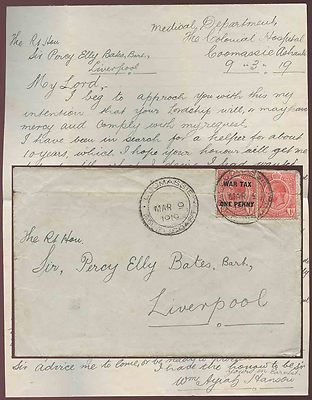 Medical Department,
The Colonial Hospital
Coomassie Ashanti
9-3-19
The Rt Hon
Sir Percy Elly Bates, Bart,
Liverpool
My Lord,
I beg to approach you with this my
intention that your Lordship will,
mercy and comply with my request.
I have been in search for a helper for about
10 years, which I hope your honour will get me
COOMASSIE
MAR 9
1919
WAR TAX
ONE PENNY
The Rt Hon,
Sir, Percy Elly Bates, Bart,
Liverpool
Sir advise me to come, or be ready to
I have the honour to be Sir
Yours in earnest
Wm Ayiah Hanson